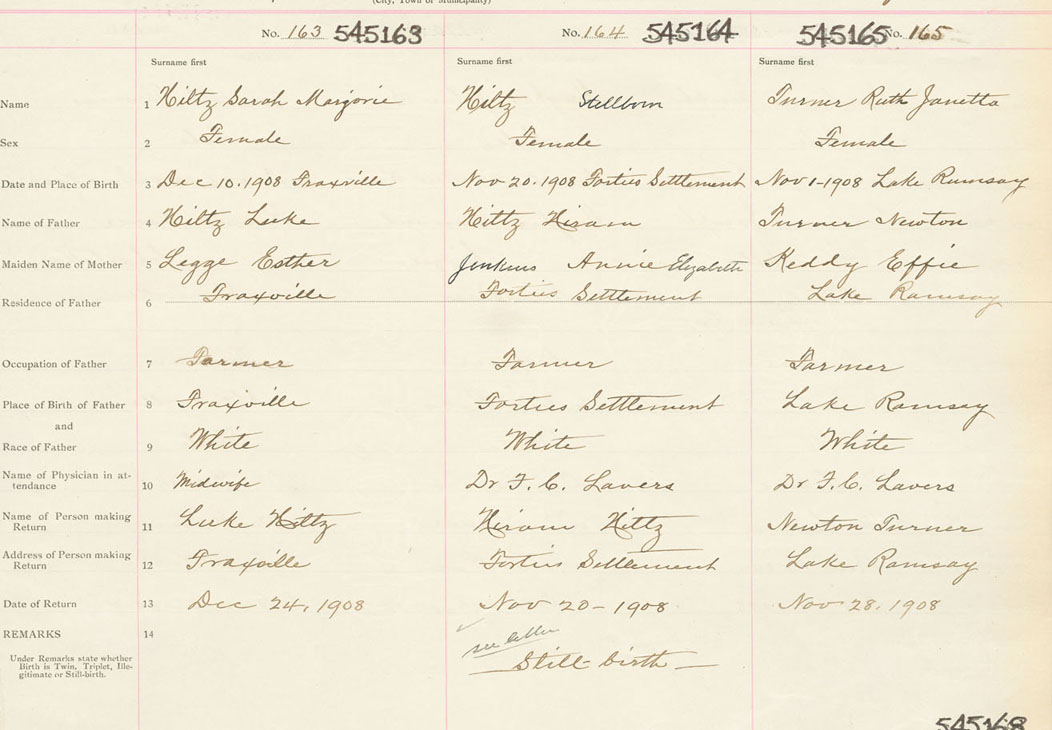 (City, Town or Municipality)
No. 163 545163 No. 164 545164 545165 No. 165
Surname first Surname first Surname first
Name 1 Hiltz Sarah Marjorie Hiltz Stillborn Turner Ruth Janetta
Sex 2 Female Female Female
Date and Place of Birth 3 Dec 10. 1908 Fraxville Nov 20. 1908 Forties Settlement Nov 1-1908 Lake Ramsay
Name of Father 4 Hiltz Luke Hiltz Hiram Turner Newton
Maiden Name of Mother 5 Legge Esther Jenkins Annie Elizabeth Keddy Effie
Residence of Father 6 Fraxville Forties Settlement Lake Ramsay
Occupation of Father 7 Farmer Farmer Farmer
Place of Birth of Father 8 Fraxville Forties Settlement Lake Ramsay
and
Race of Father 9 White White White
Name of Physician in at-
tendance 10 Midwife Dr F. C. Lavers Dr F. C. Lavers
Name of Person making
Return 11 Luke Hiltz Hiram Hiltz Newton Turner
Address of Person making
Return 12 Fraxville Forties Settlement Lake Ramsay
Date of Return 13 Dec 24, 1908 Nov 20 - 1908 Nov 28. 1908
REMARKS 14
see letter
Under Remarks state whether
Birth is Twin, Triplet, Ille-
gitimate or Still-birth.
Still-birth
545168